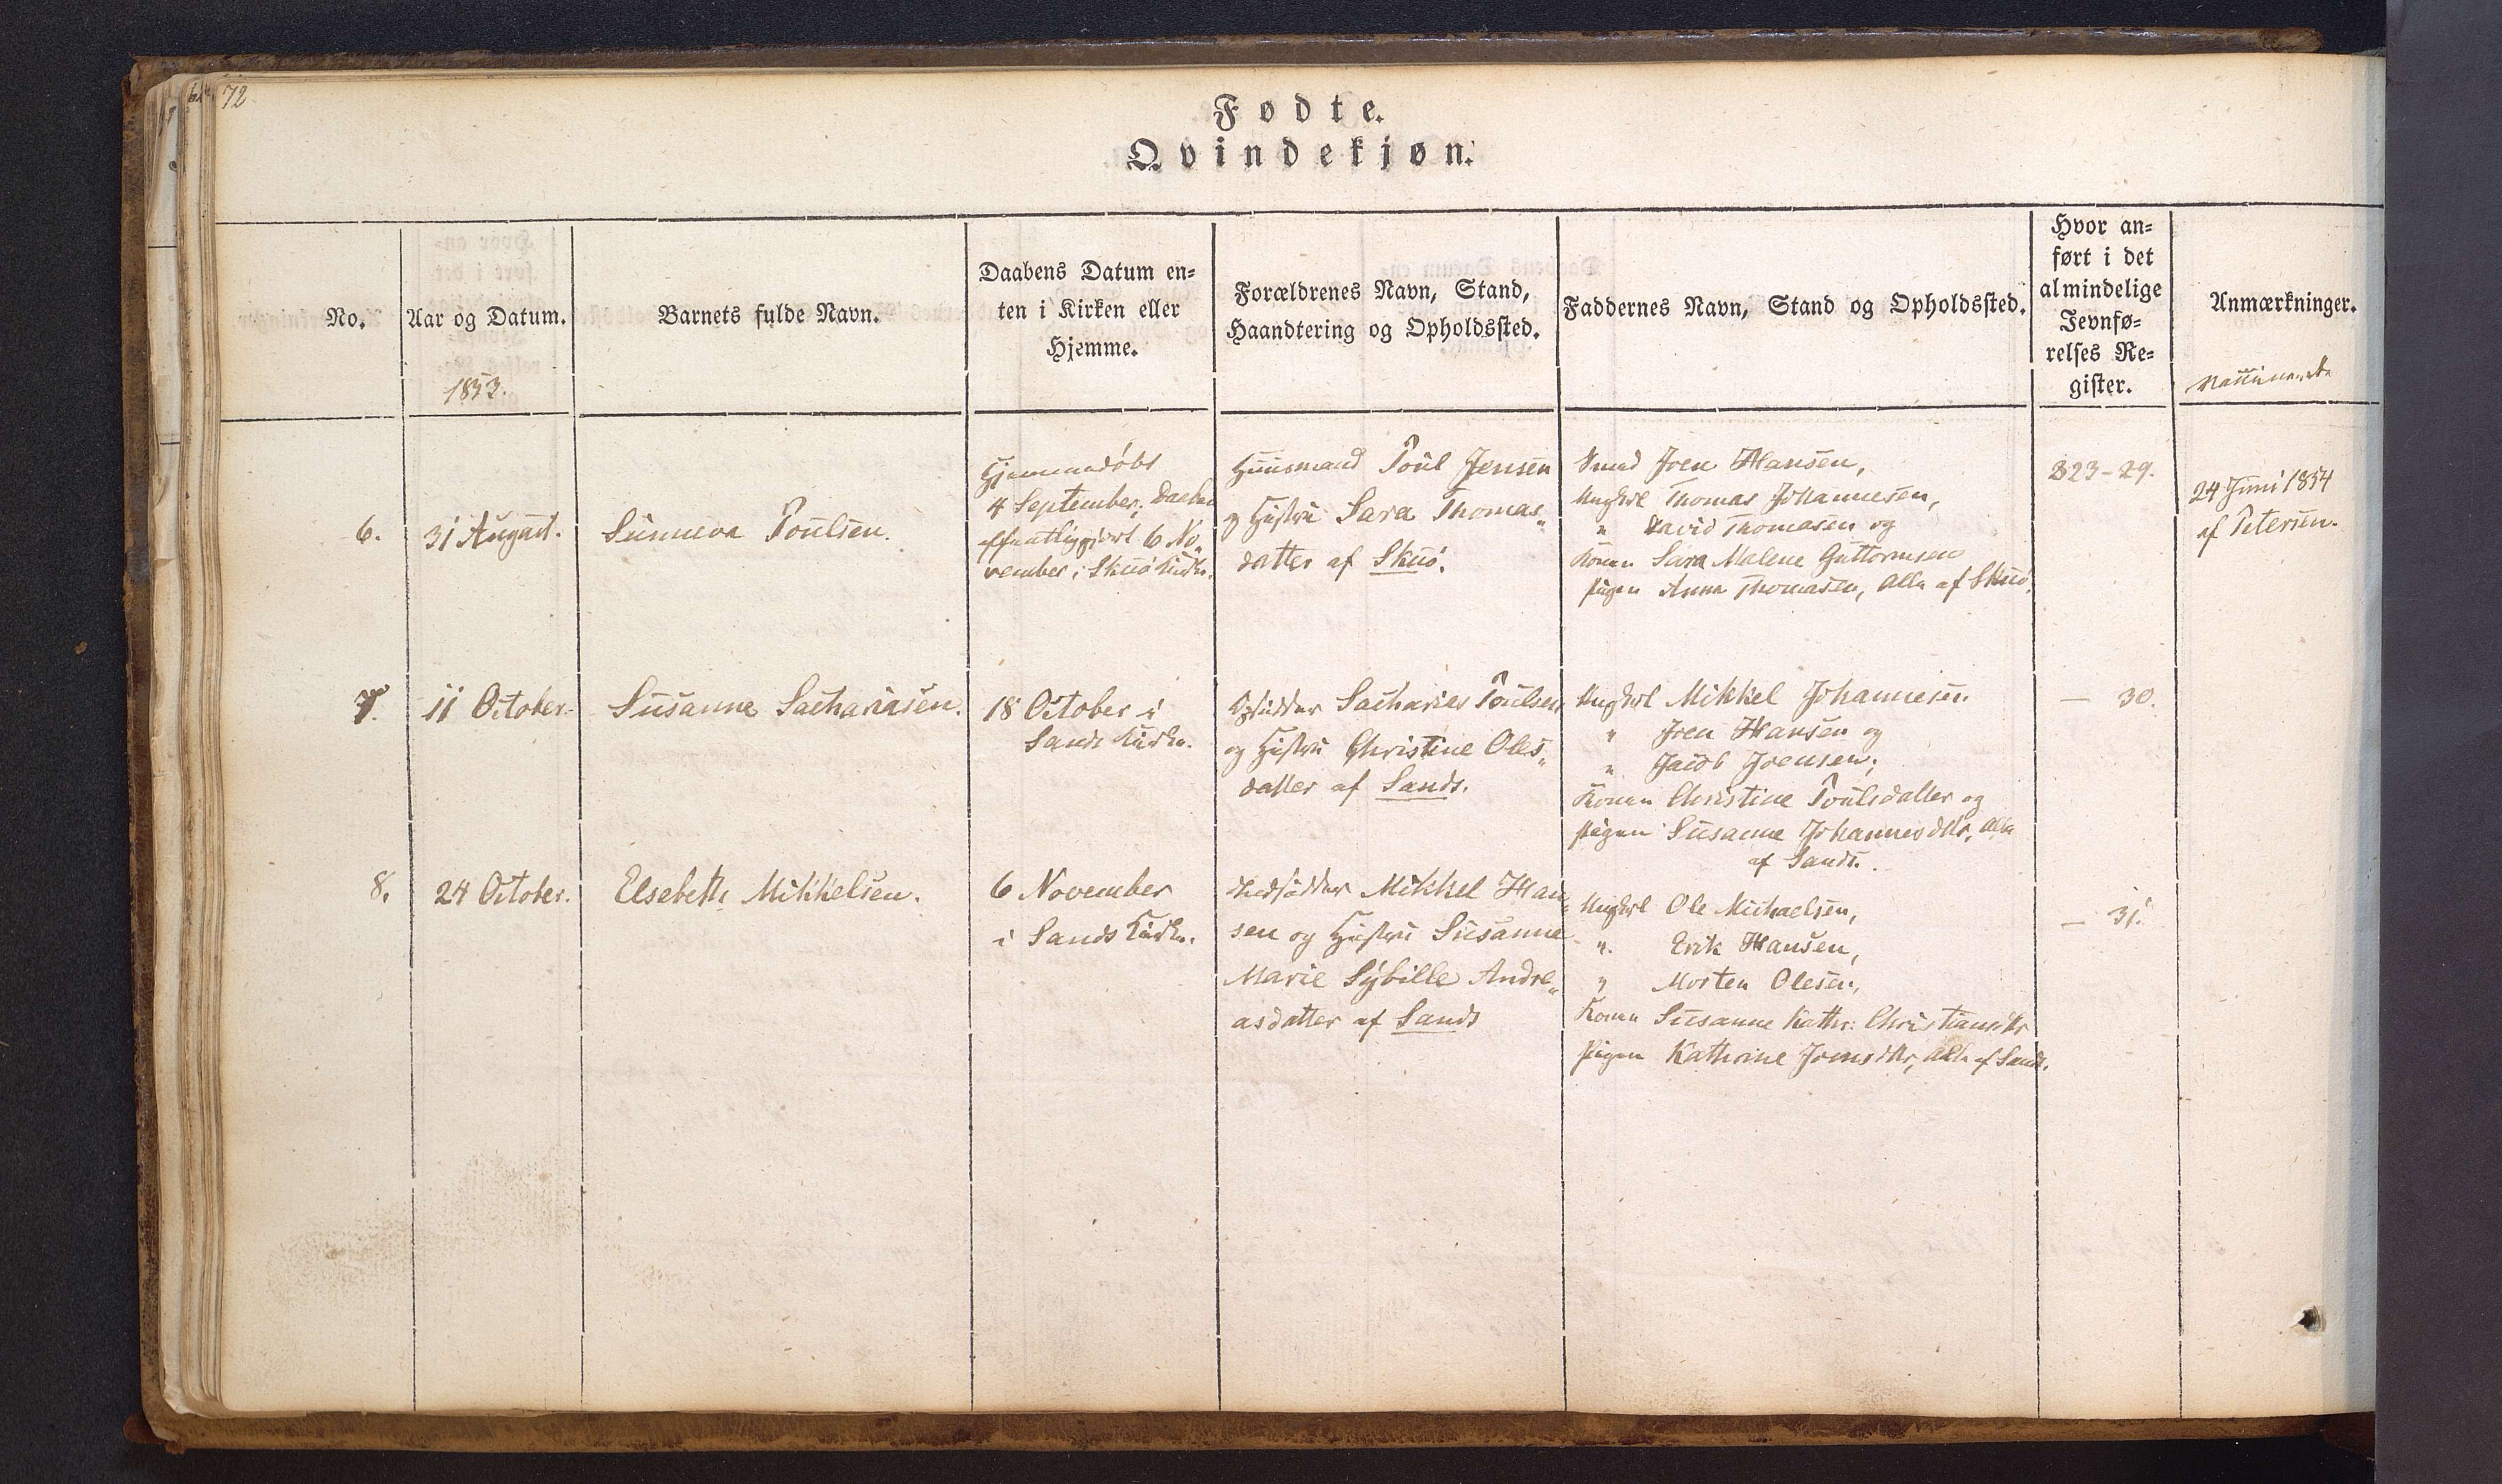 72
Fødte.
Qvindekjøn.
No.
Aar og Datum.
1853.
Barnets fulde Navn.
Daabens Datum en-
ten i Kirken eller
Hjemme.
Forældrenes Navn, Stand,
Haandtering og Opholdssted.
Faddernes Navn, Stand og Opholdssted.
Hvor an-
ført i det
almindelige
Jevnfø-
relses Re-
gister.
Anmærkninger.
Vaccinerede
6.
31 August.
Sunneva Poulsen.
Hjemmedøbt
4 September; Daaben
offentliggjort 6 No-
vember i Skuö Kirke.
Huusmand Poul Jensen
og Hustru Sara Thomas-
datter af Skuö.
Smed Joen Hansen,
Ungkarl Thomas Johannesen,
" David Thomasen og
Konen Sara Malene Guttormsen
Pigen Anna Thomasen, Alle af Skuö.
823-29.
24 Juni 1854
af Petersen.
7.
11 October.
Susanne Sachariasen.
18 October i
Sands Kirke.
Opsidder Sacharias Poulsen
og Hustru Christine Oles-
datter af Sands.
Ungkarl Mikkel Johannesen
" Joen Hansen og
" Jacob Joensen;
Konen Christine Poulsdatter og
Pigen Susanne Johannesdttr, Alle
af Sands.
— 30.
8.
24 October.
Elsebeth Mikkelsen.
6 November
i Sands Kirke.
Indsidder Mikkel Han-
sen og Hustru Susanne
Marie Sybille Andre-
asdatter af Sands
Ungkarl Ole Michaelsen,
". Erik Hansen,
" Morten Olesen,
Konen Susanne Kathr: Christiansdttr
Pigen Kathrine Joensdttr, Alle af Sands.
— 31.